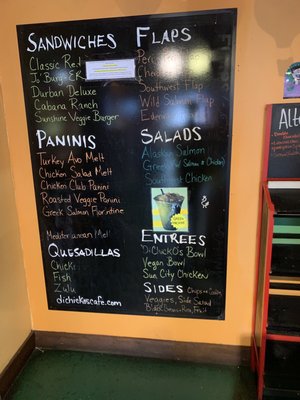 SANDWICHES
Classic Re
Jo' Burg
Durban Deluxe
Cabana Ranch
Sunshine Veggie Burger
PANINIS
Turkey Avo Melt
Chicken Salad Melt
Chicken Club Panini
Roasted Veggie Panini
Greek Salmon Florentine
QUESADILLAS
Chicki
Fish
Zulu
dichickoscafe.com
FLAPS
Southwest Flap
Wild Salmon Flap
SALADS
Alaskan Salmon
Greek (w/ Salmon or Chicken)
Southwest Chicken
ENTREES
DiChicko's Bowl
Vegan Bowl
Sun City Chicken
SIDES Chips
Veggies, Side Salad
Black Beans + Rice, Fruit